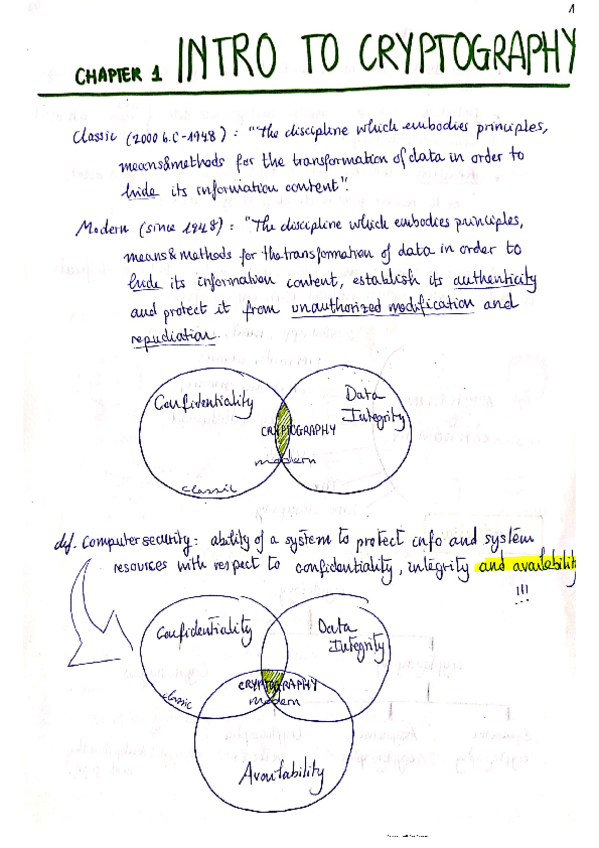 1
CHAPTER 1 INTRO TO CRYPTOGRAPHY
Classic (2000 b.C-1948): "The discipline which embodies principles,
means&methods for the transformation of data in order to
hide its information content".
Modern (since 1948): "The discipline which embodies principles,
means & methods for the transformation of data in order to
hide its information content, establish its authenticity
and protect it from unauthorized modification and
repudiation.
Confidentiality
Data
Integrity
CRYPTOGRAPHY
modern
classic
def. Computer security: ability of a system to protect info and system
resources with respect to confidentiality, integrity and availability
!!!
Confidentiality
Data
Integrity
CRYPTOGRAPHY
modern
classic
Availability